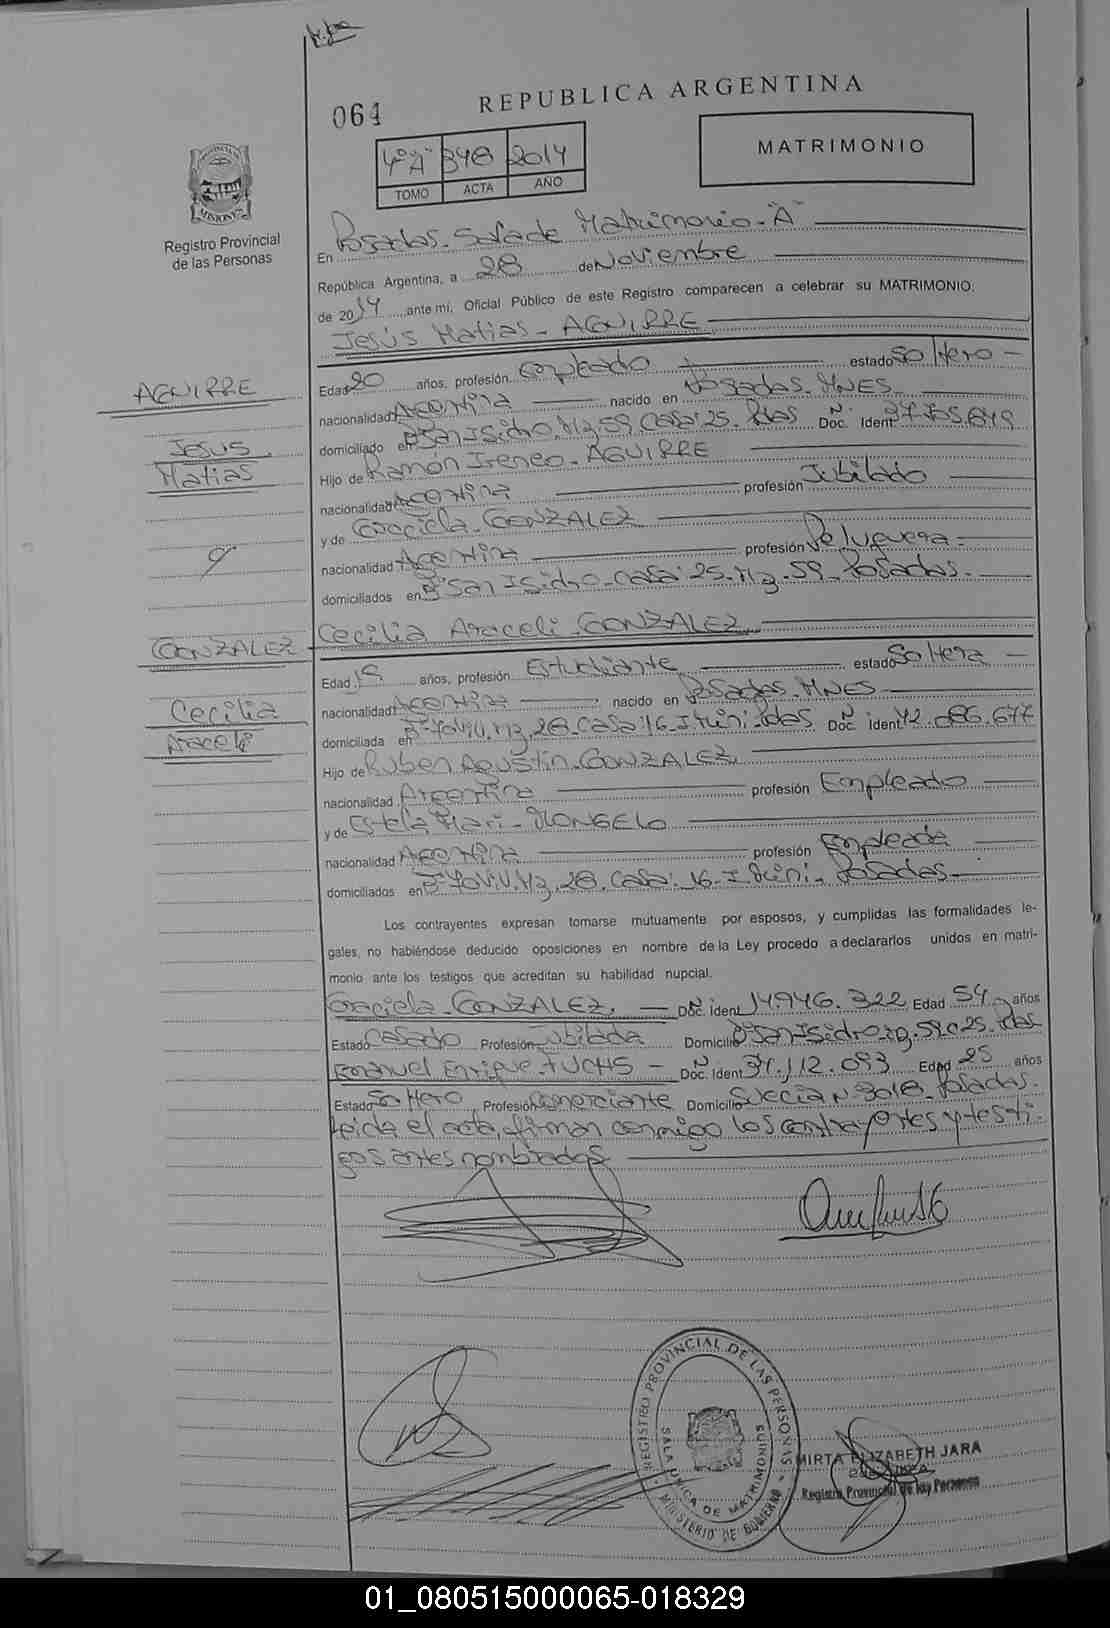 064
REPUBLICA ARGENTINA
MATRIMONIO
4º "A" 348 2014
TOMO ACTA AÑO
PROVINCIA
MISIONES
Registro Provincial
de las Personas
En Posadas. Sala de Matrimonio - "A"
República Argentina, a 28 de Noviembre
de 2014 ante mí, Oficial Público de este Registro comparecen a celebrar su MATRIMONIO:
Jesús Matias - AGUIRRE
AGUIRRE
Jesus
Matias
Edad 20 años, profesión Empleado estado Soltero -
nacionalidad Argentina nacido en Posadas. MNES
domiciliado en Bº San Isidro. Mz 59 Casa: 25. Pdas Doc. Ident
Hijo de Ramón Ireneo - AGUIRRE
nacionalidad Argentina profesión Jubilado
y de Graciela - GONZALEZ
nacionalidad Argentina profesión Peluquera -
domiciliados en Bº San Isidro - Casa: 25 - Mz. 59 - Posadas.
y
GONZALEZ
Cecilia
Araceli
Cecilia Araceli - GONZALEZ
Edad 19 años, profesión Estudiante estado Soltera -
nacionalidad Argentina nacido en Posadas. MNES
domiciliada en Mz. 28 - Casa: 16 - Pdas Doc. Ident 42.086.677
Hijo de Ruben Agustin - GONZALEZ
nacionalidad Argentina profesión Empleado
y de Estela Mari -
nacionalidad Argentina profesión Empleada
domiciliados en Mz. 28. Casa: 16 - Posadas -
Los contrayentes expresan tomarse mutuamente por esposos, y cumplidas las formalidades le-
gales, no habiéndose deducido oposiciones en nombre de la Ley procedo a declararlos unidos en matri-
monio ante los testigos que acreditan su habilidad nupcial.
Graciela - GONZALEZ. Doc. ident 14.946.322 Edad 54 años
Estado Casado Profesión Jubilada Domicilio Bº San Isidro
Emanuel Enrique FUCHS - Doc. Ident Edad 25 años
Estado Soltero Profesión Comerciante Domicilio Suecia Nº 3018 - Posadas.
Leida el acta, firman conmigo los contrayentes y testi-
gos antes nombrados
REGISTRO PROVINCIAL DE LAS PERSONAS
SALA UNICA DE MATRIMONIOS
MINISTERIO DE GOBIERNO
MIRTA ELIZABETH JARA
Registro Provincial de las Personas
01_080515000065-018329